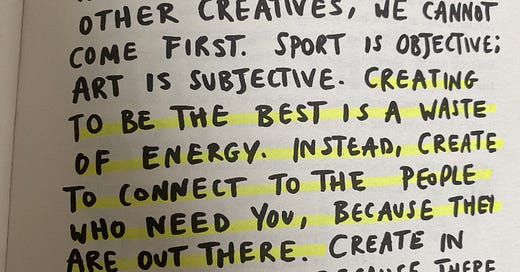 OTHER CREATIVES, WE CANNOT
COME FIRST. SPORT IS OBJECTIVE;
ART IS SUBJECTIVE. CREATING
TO BE THE BEST IS A WASTE
OF ENERGY. INSTEAD, CREATE
TO CONNECT TO THE PEOPLE
WHO NEED YOU, BECAUSE THEY
ARE OUT THERE. CREATE IN
BECAUSE THERE